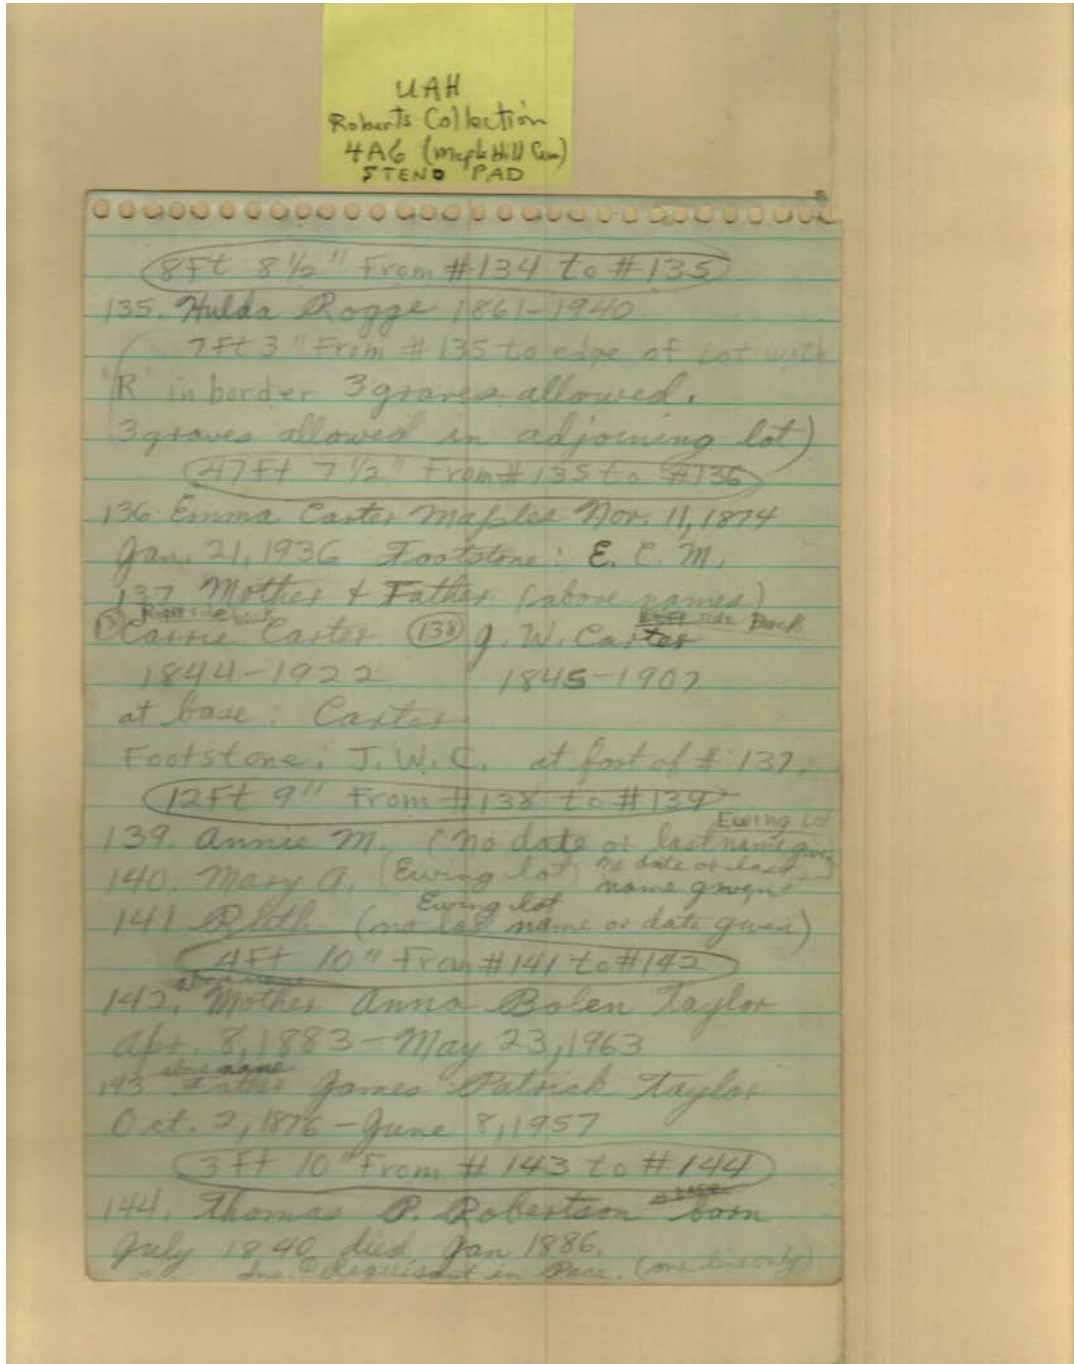 UAH
Roberts Collection
4A6 (Maple Hill Cem)
STENO PAD
8Ft 8 1/2" From #134 to #135
135. Hulda Rogge 1861-1940
7Ft 3" From #135 to edge of Lot with
"R" in border 3 graves allowed.
3 graves allowed in adjoining lot)
47Ft 7 1/2" From #135 to #136
136 Emma Carter Maples Nov. 11, 1874
Jan. 21, 1936 Footstone: E. C. M.
137 Mother & Father (above names)
Right side back side Back
Carrie Carter (138) J. W. Carter
1844-1922 1845-1907
at base: Carter
Footstone: J. W. C. at foot of #137.
12Ft 9" From #138 to #139
Ewing Lot
139. Annie M. (no date or last name given)
140. Mary A. (Ewing lot) no date or last
name given
Ewing lot
141 Ruth (no last name or date given)
4Ft 10" From #141 to #142
above name
142. Mother Anna Bolen Taylor
Apr. 8, 1883 - May 23, 1963
above name
143 Father James Patrick Taylor
Oct. 2, 1876 - June 8, 1957
3Ft 10" From #143 to #144
at base
144. Thomas P. Robertson born
July 1840 died Jan 1886.
Ins. Requiscant in Pace. (one line only)